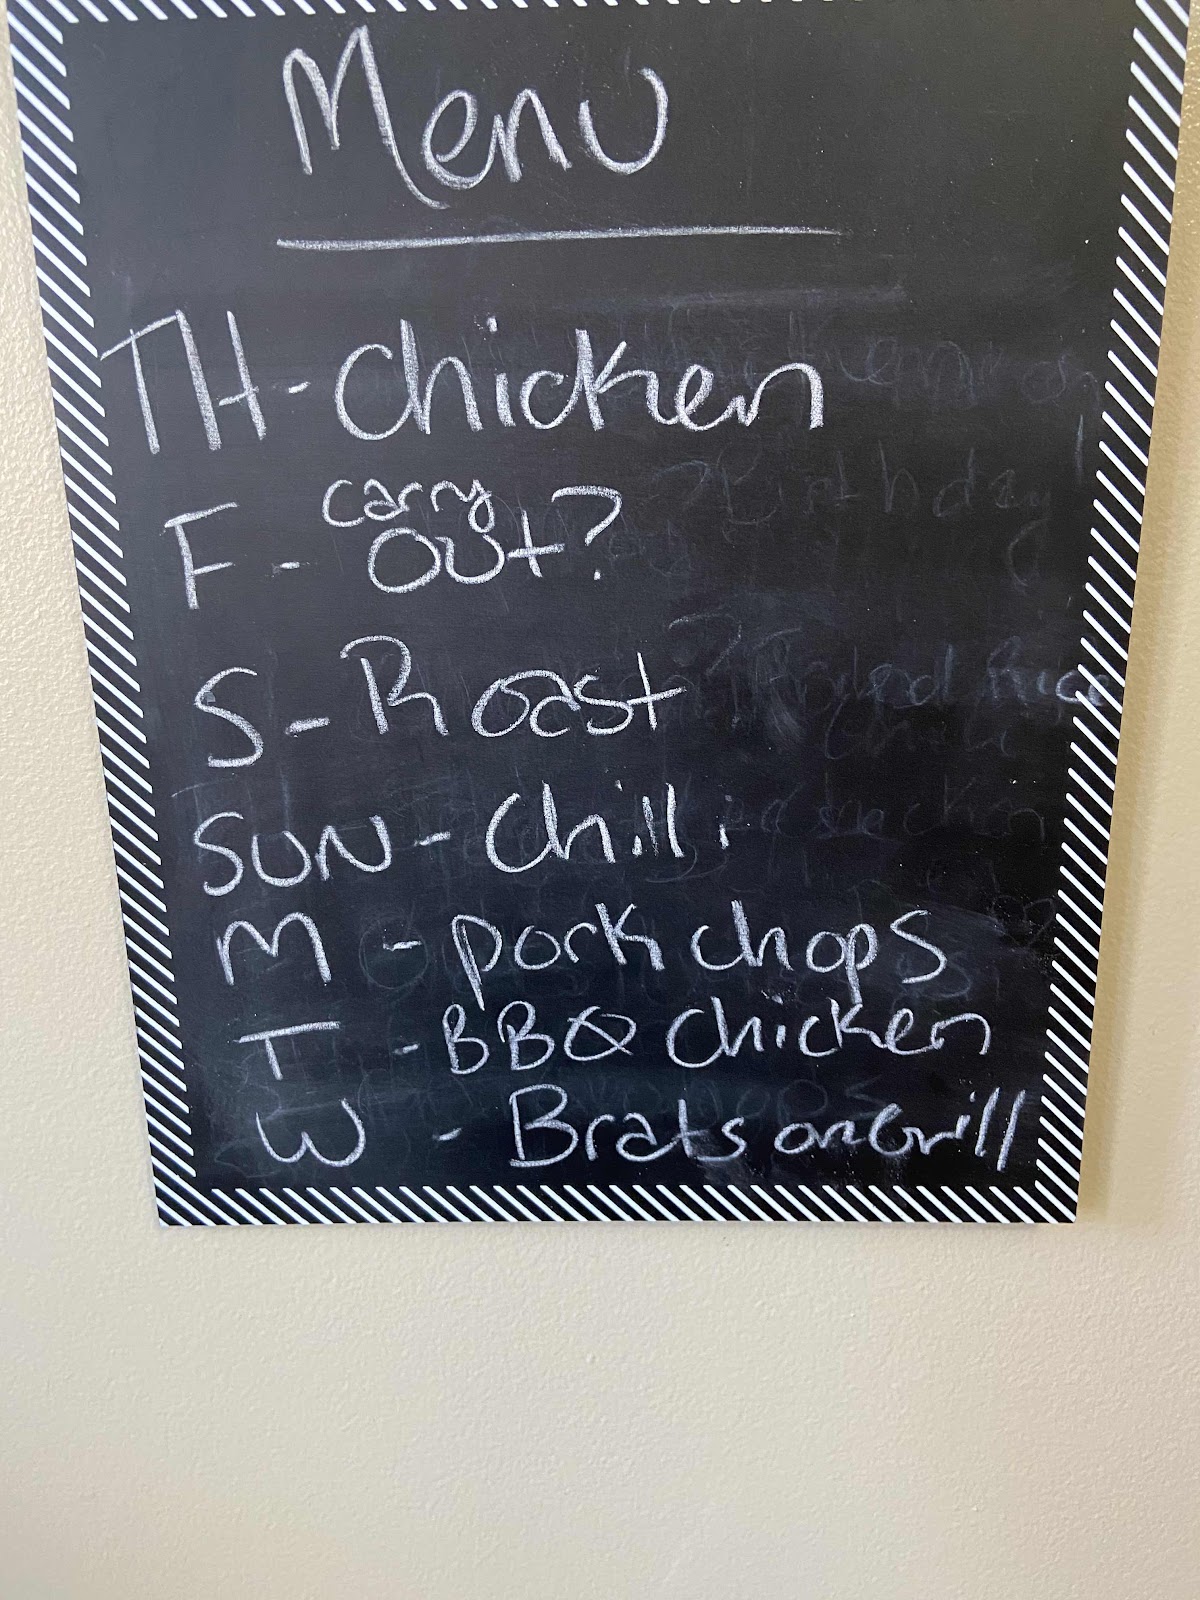 Menu
TH - Chicken
F - Carry
Out?
S - Roast
SUN - Chilli
M - pork chops
T - BBQ Chicken
W - Brats on Grill